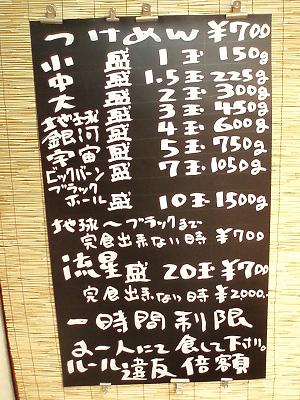 つけめん ¥700
小 盛 1玉 150g
中 1.5玉 225g
大 盛 2玉 300g
地球 盛 3玉 450g
銀河 盛 4玉 600g
宇宙 盛 5玉 750g
ビックバーン 盛 7玉 1050g
ブラックホール 盛 10玉 1500g
地球〜ブラックまで
完食出来ない時 ¥700
流星盛 20玉 ¥700
完食出来ない時 ¥2000.-
一時間制限
お一人にて食して下さい。
ルール違反 倍額